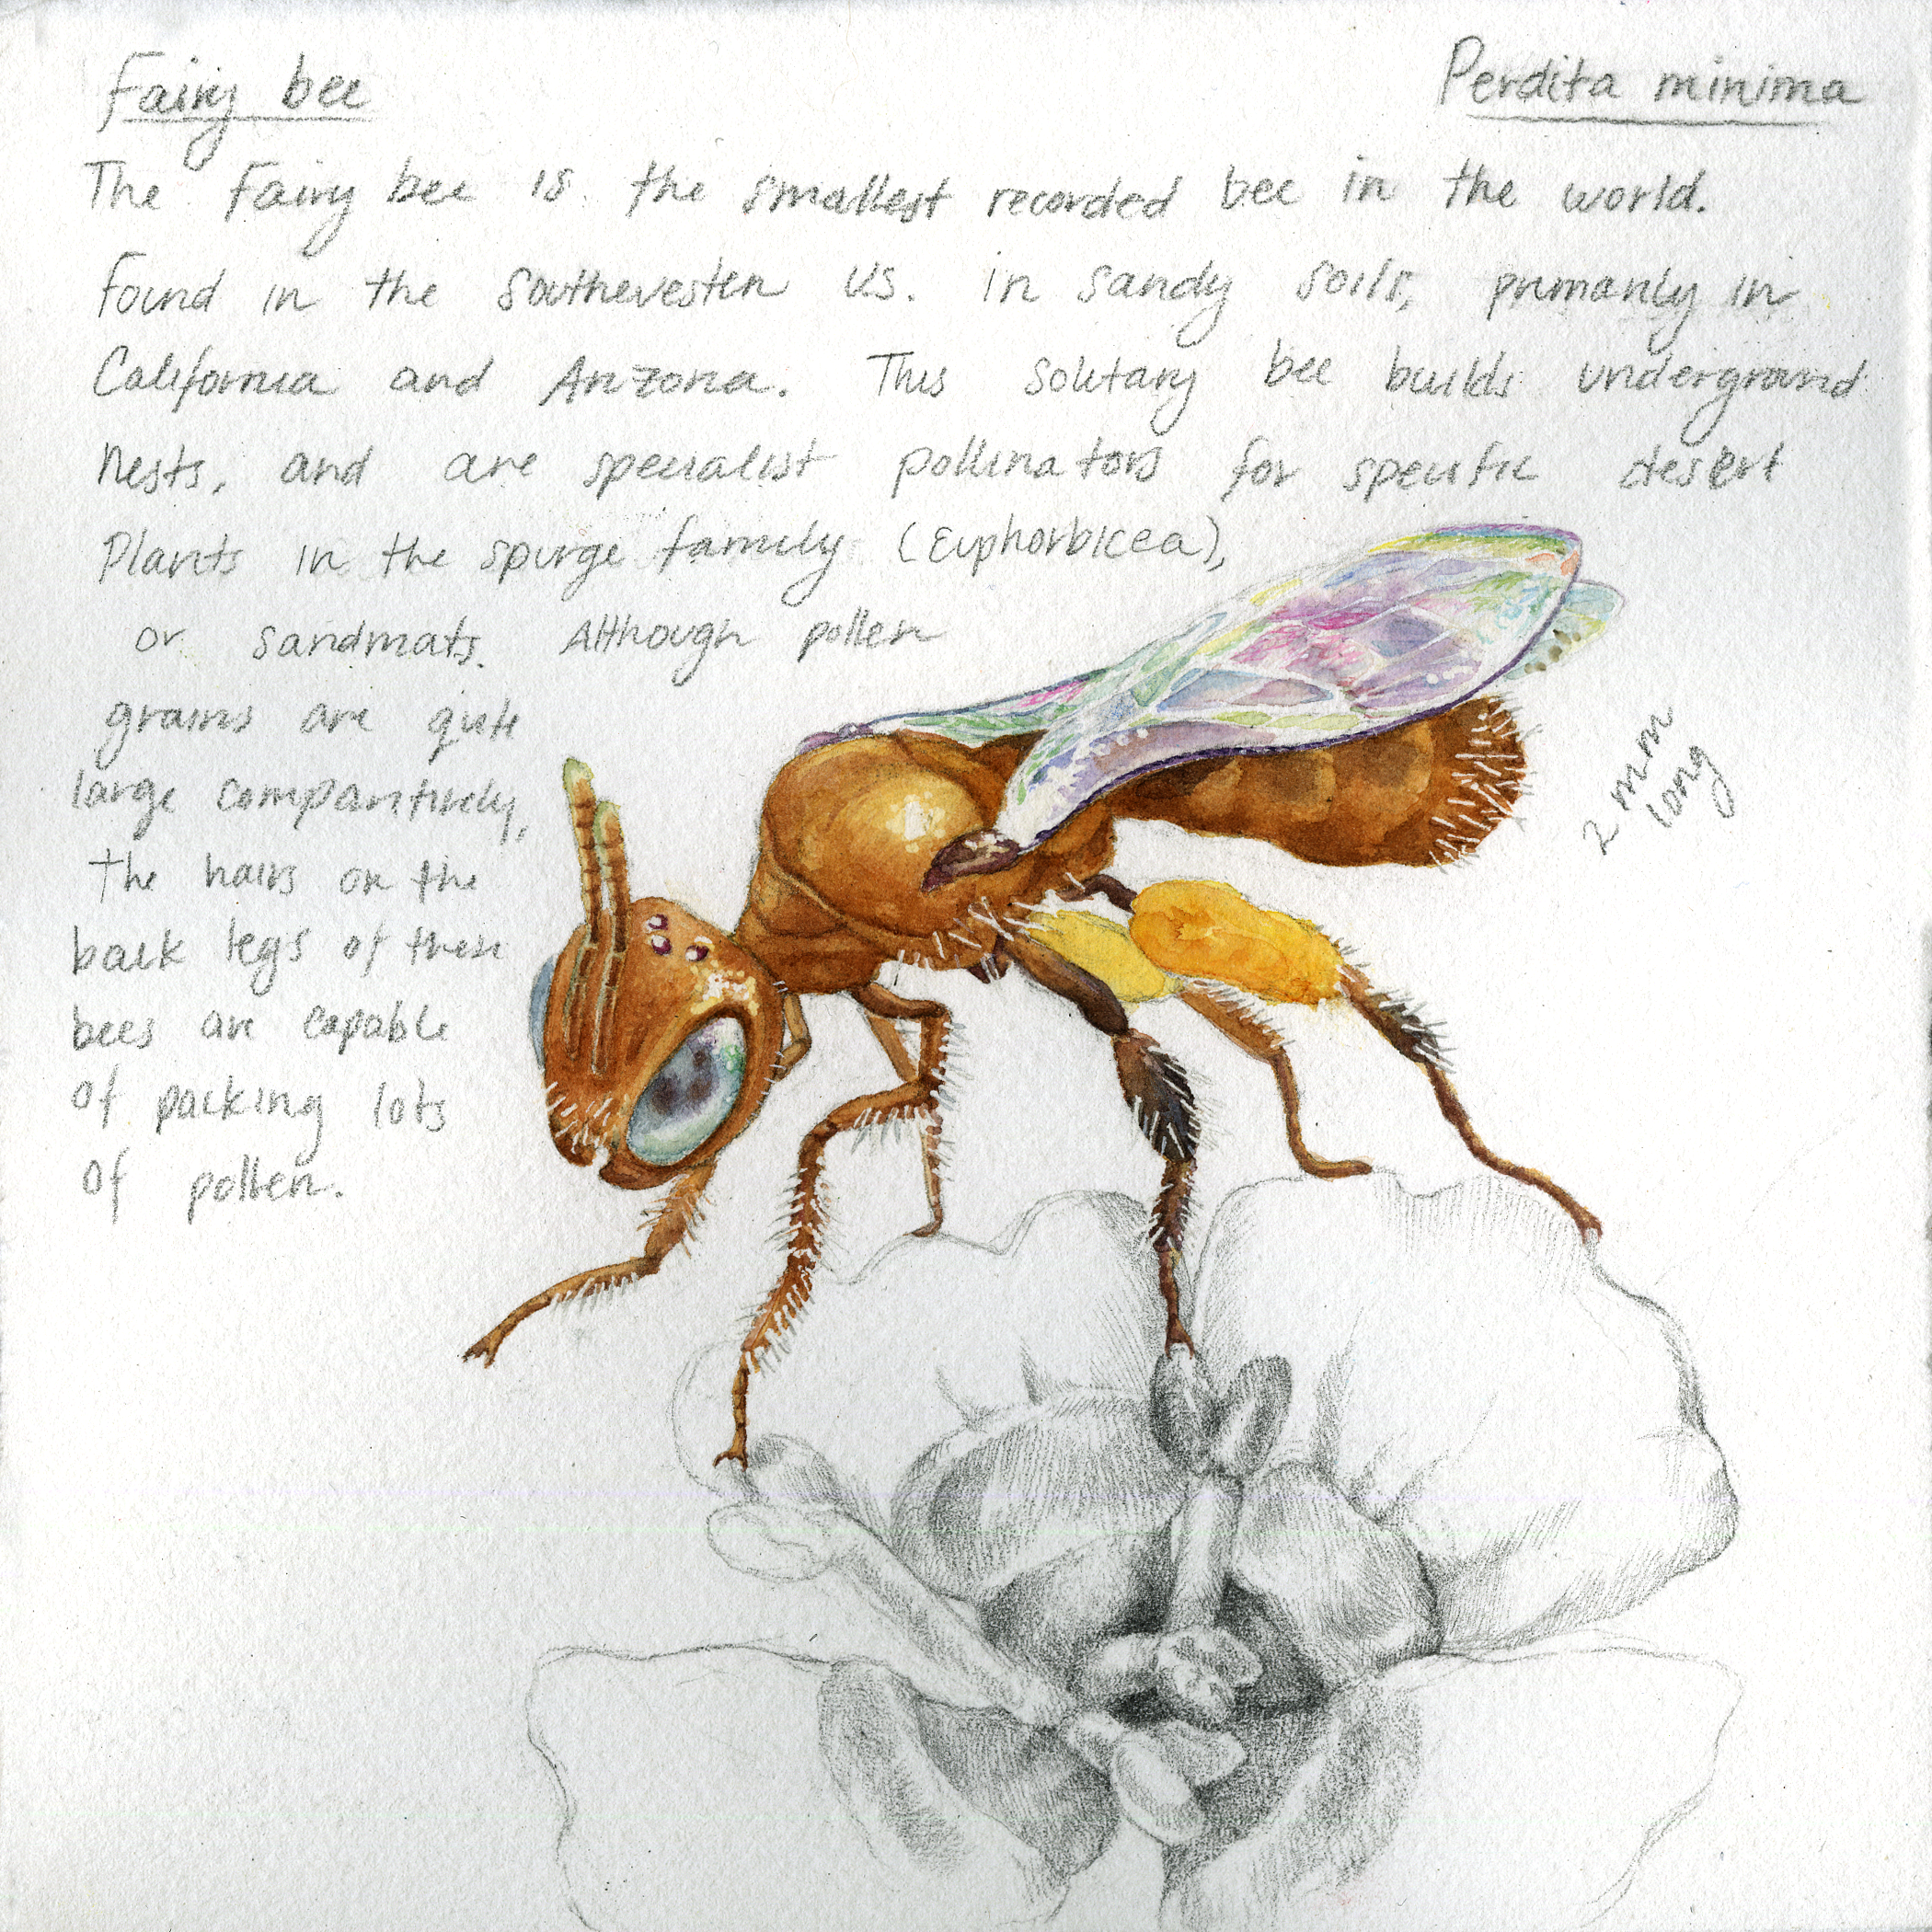 Fairy bee
Perdita minima
The Fairy bee is the smallest recorded bee in the world.
Found in the Southewesten US. in sandy soils, primarily in
California and Arizona. This solitary bee builds underground
nests, and are specialist pollinators for specific desert
plants in the spurge family (Euphorbicea),
or sandmats. Although pollen
grains are quite
large comparitively,
the hairs on the
back legs of these
bees are capable
of packing lots
of pollen.
2 mm
long